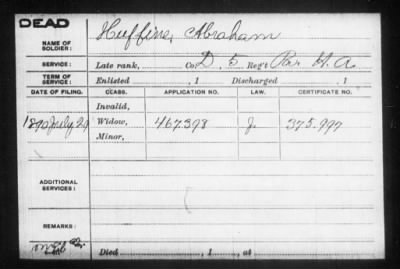 DEAD
NAME OF SOLDIER: Huffine, Abraham
SERVICE: Late rank, Co. D, 5 Reg't Pa. H. A.
TERM OF SERVICE: Enlisted , 1 Discharged , 1
DATE OF FILING. CLASS. APPLICATION NO. LAW. CERTIFICATE NO.
Invalid,
1890 July 29 Widow, 467.398 J. 375.997
Minor,
ADDITIONAL SERVICES:
REMARKS:
Died , 1 , at